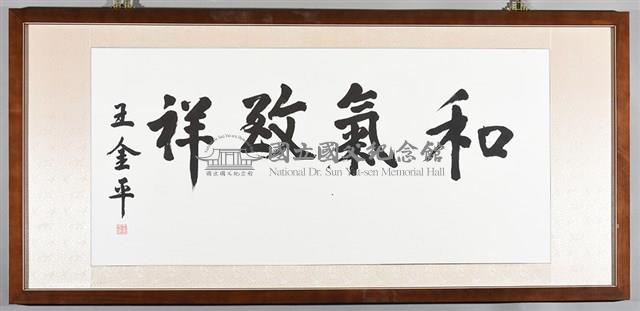 和氣致祥
王金平
國立國父紀念館
National Dr. Sun Yat-sen Memorial Hall
國立國父紀念館